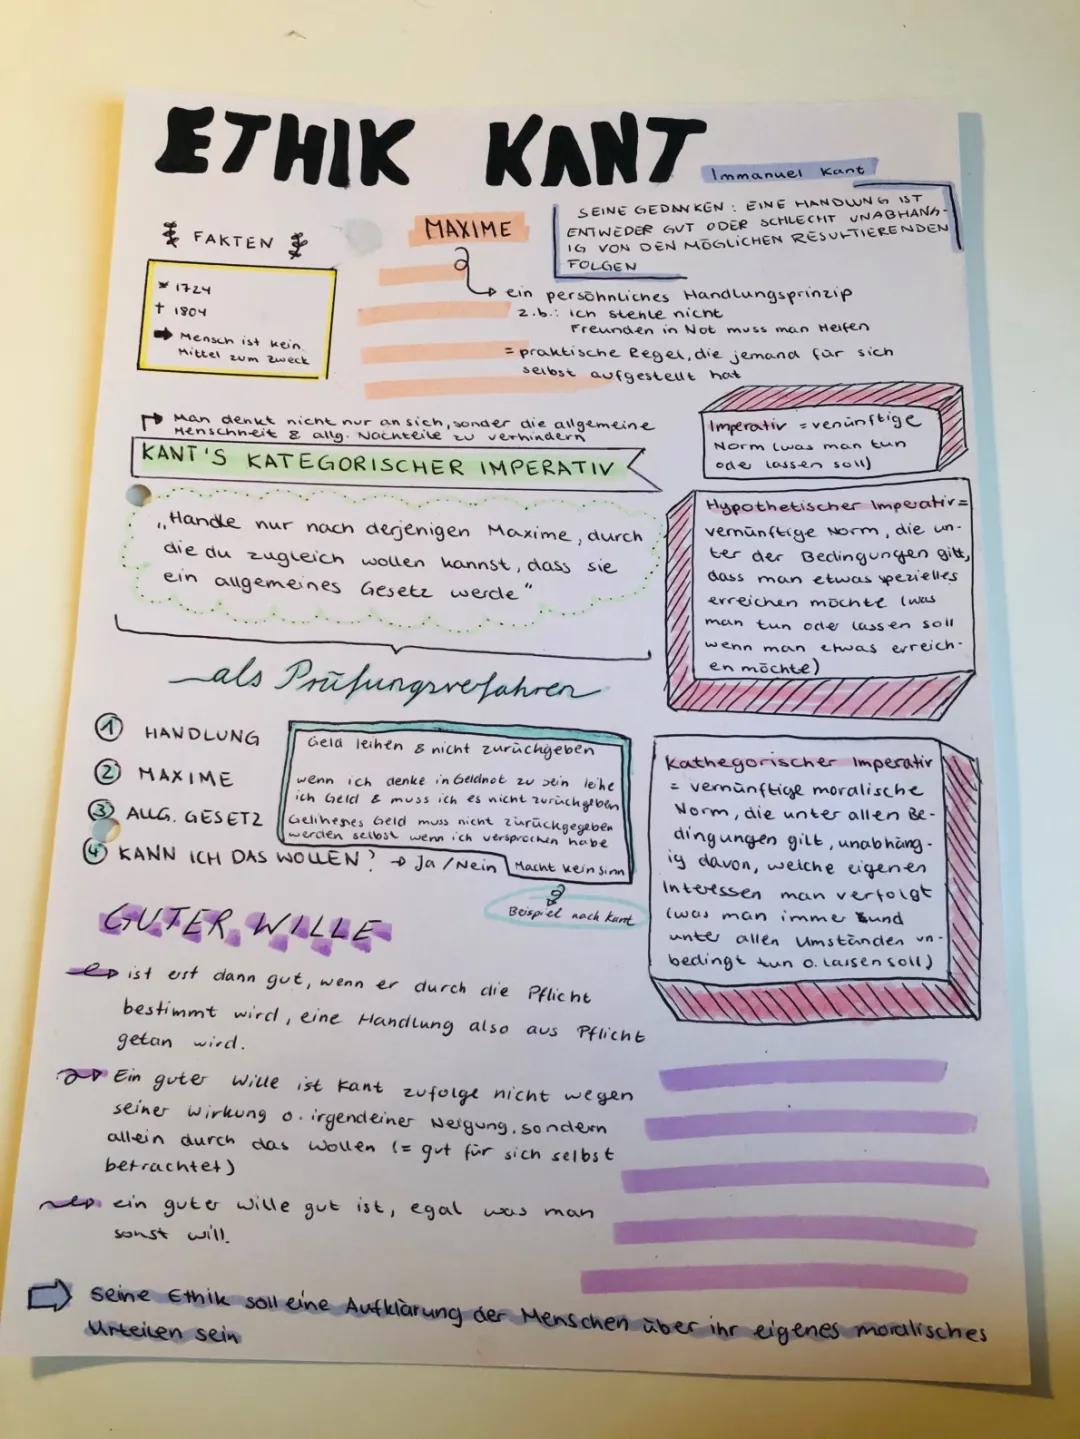 ETHIK KANT
Immanuel Kant
SEINE GEDANKEN: EINE HANDLUNG IST
ENTWEDER GUT ODER SCHLECHT UNABHÄNG-
IG VON DEN MÖGLICHEN RESULTIERENDEN
FOLGEN
FAKTEN
* 1724
† 1804
➡ Mensch ist kein
Mittel zum zweck
MAXIME
ein persöhnliches Handlungsprinzip
z.b.: ich stehle nicht
Freunden in Not muss man Helfen
= praktische Regel, die jemand für sich
selbst aufgestellt hat
Man denkt nicht nur an sich, sonder die allgemeine
Menschheit & allg. Nachteile zu verhindern
KANT'S KATEGORISCHER IMPERATIV
„Handle nur nach derjenigen Maxime, durch
die du zugleich wollen kannst, dass sie
ein allgemeines Gesetz werde"
als Prüfungsverfahren
① HANDLUNG
② MAXIME
③ ALLG. GESETZ
④ KANN ICH DAS WOLLEN? → Ja / Nein
Geld leihen & nicht zurückgeben
wenn ich denke in Geldnot zu sein leihe
ich Geld & muss ich es nicht zurückgeben
Gelihenes Geld muss nicht zurückgegeben
werden selbst wenn ich versprochen habe
Macht kein sinn
Beispiel nach Kant
Imperativ = venünftige
Norm (was man tun
ode lassen soll)
Hypothetischer Imperativ =
vernünftige Norm, die un-
ter der Bedingungen gilt,
dass man etwas spezielles
erreichen möchte (was
man tun oder lassen soll
wenn man etwas erreich-
en möchte)
Kathegorischer Imperativ
= vernünftige moralische
Norm, die unter allen Be-
dingungen gilt, unabhäng-
ig davon, welche eigenen
Interessen man verfolgt
(was man immer und
unter allen Umständen un-
bedingt tun o. lassen soll)
GUTER WILLE
ist erst dann gut, wenn er durch die Pflicht
bestimmt wird, eine Handlung also aus Pflicht
getan wird.
Ein guter Wille ist Kant zufolge nicht wegen
seiner Wirkung o. irgendeiner Neigung, sondern
allein durch das Wollen (= gut für sich selbst
betrachtet)
ein guter Wille gut ist, egal was man
sonst will.
Seine Ethik soll eine Aufklärung der Menschen über ihr eigenes moralisches
Urteilen sein